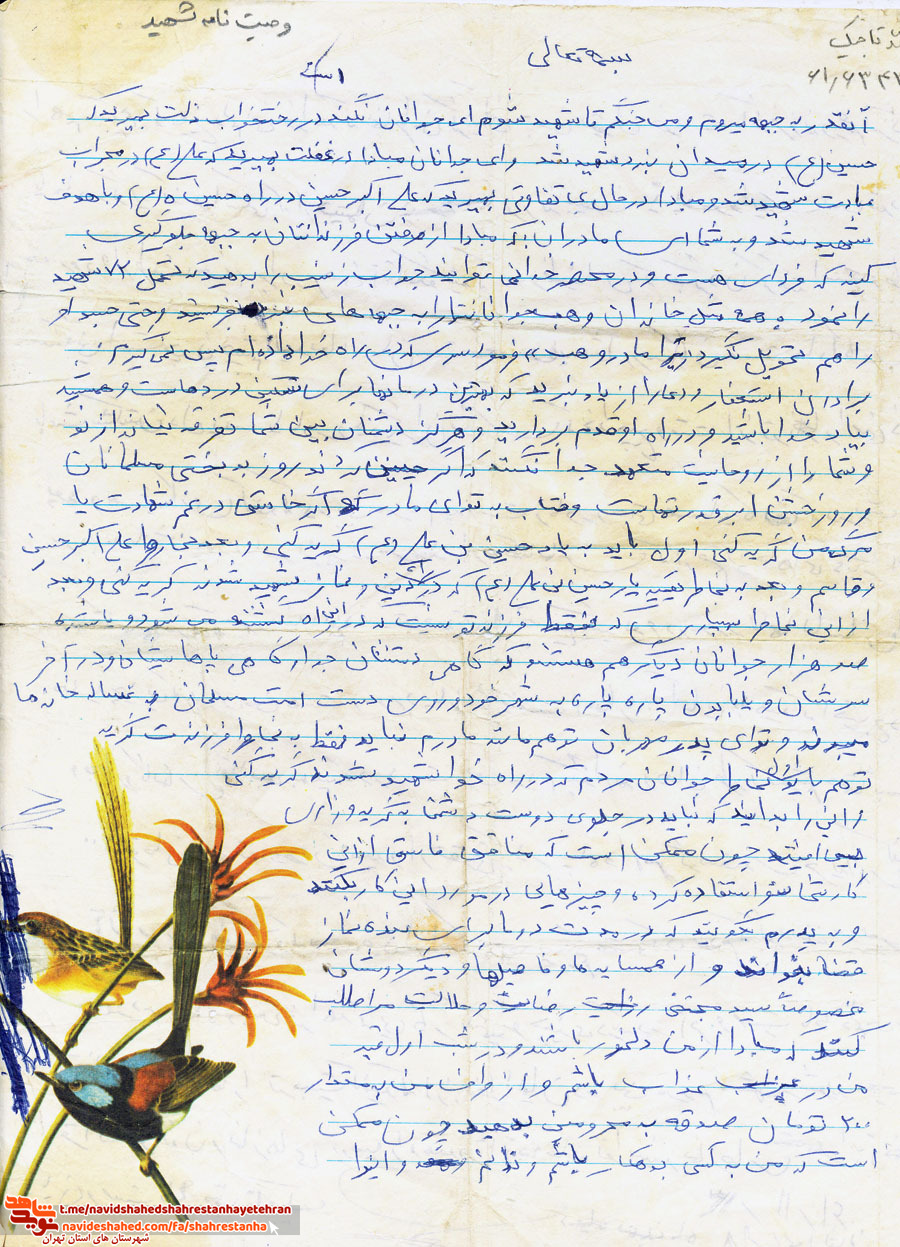 وصیت نامه شهید
بسمه تعالی
آنقدر به جبهه میروم و می جنگم تا شهید شوم ای جوانان نکند در رختخواب ذلت بمیرید که
حسین (ع) در میدان نبرد شهید شد وای جوانان مبادا در غفلت بمیرید که علی (ع) در محراب
عبادت شهید شد و مبادا در حال بی تفاوتی بمیرید که علی اکبر حسین در راه حسین (ع) و با هدف
شهید شد و به شما ای مادران که مبادا از رفتن فرزندانتان به جبهه جلوگیری
کنید که فردای هست و در محضر خدا نمی توانید جواب زینب را بدهید که تحمل ۷۲ شهید
را نمود همه مثل خاندان وهب جوانانتان را به جبهه های نبرد بفرستید و حتی جسد او
را هم تحویل نگیرید زیرا مادر وهب فرمود سری که در راه خدا داده ام پس نمی گیرم
برادران استغفار و دعا را از یاد نبرید که بهترین درمانها برای تسکین درد هاست و همیشه
بیاد خدا باشید و در راه او قدم بردارید و هرگز دشمنان بین شما تفرقه نیندازند
و شما را از روحانیت متعهد جدا نکنند که اگر چنین کردند روز بدبختی مسلمانان
و روز جشن ابر قدرتهاست و خطاب به تو ای مادر اگر خواستی در غم شهادت یا
مرگ من گریه کنی اول باید به یاد حسین بن علی (ع) گریه کنی و بعد بخاطر علی اکبر حسین
و قاسم و بعد به خاطر بقیه یاز حسین بن علی (ع) که شهید شدند گریه کنی و بعد
از این بخاطر بسیاری که فقط فرزند تو نیست که در این راه کشته می شود
صد هزار جوانان دیگر هم هستند که گاهی دستشان جدا و گاهی پاهایشان و در آخر
سرشان و یا بدن پاره پاره به شهر خود و روی دست امت مسلمان به غسالخانه ها
میروند و تو ای پدر مهربان تو هم مانند مادرم نباید فقط به خاطر فرزندت گریه
تو هم باید بخاطر جوانان مردم که در راه خدا شهید شدند گریه کنی
و این را بدانید که نباید در جلوی دوست و دشمن به گریه و زاری
چون ممکن است که منافق فاسق از این
کار شما سوء استفاده کرده و چیزهایی در مورد این کار بگویند
و به پدرم بگویید که در مدت دو ماه برای بنده نماز
قضا بخواند و از همسایه ها و فامیلها و دیگر دوستان
مخصوصاً سید مجتبی رضایت و حلالیت مرا طلب
کنند که مبادا از من دلخور باشند و در شب اول قبر
من در عذاب باشم و از طرف من به مقدار
۲۰۰ تومان صدقه به محرومین بدهید چون ممکن
است که من به کسی بدهکار باشم و ندانم و این را
t.me/navidshahedshahrestanhayetehran
navideshahed.com/fa/shahrestanha
نوید شاهد
شهرستان های استان تهران